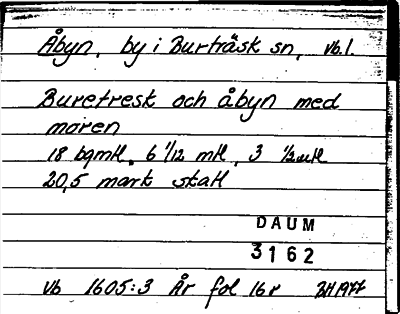 Åbyn, by i Burträsk sn, Vb.l.
Buretresk och åbyn med
moren
18 bqmkl, 6 1/12 mkl, 3 1/2 mkl
20,5 mark skatt
DAUM
3162
Vb 1605:3 År fol 16r BH 1977